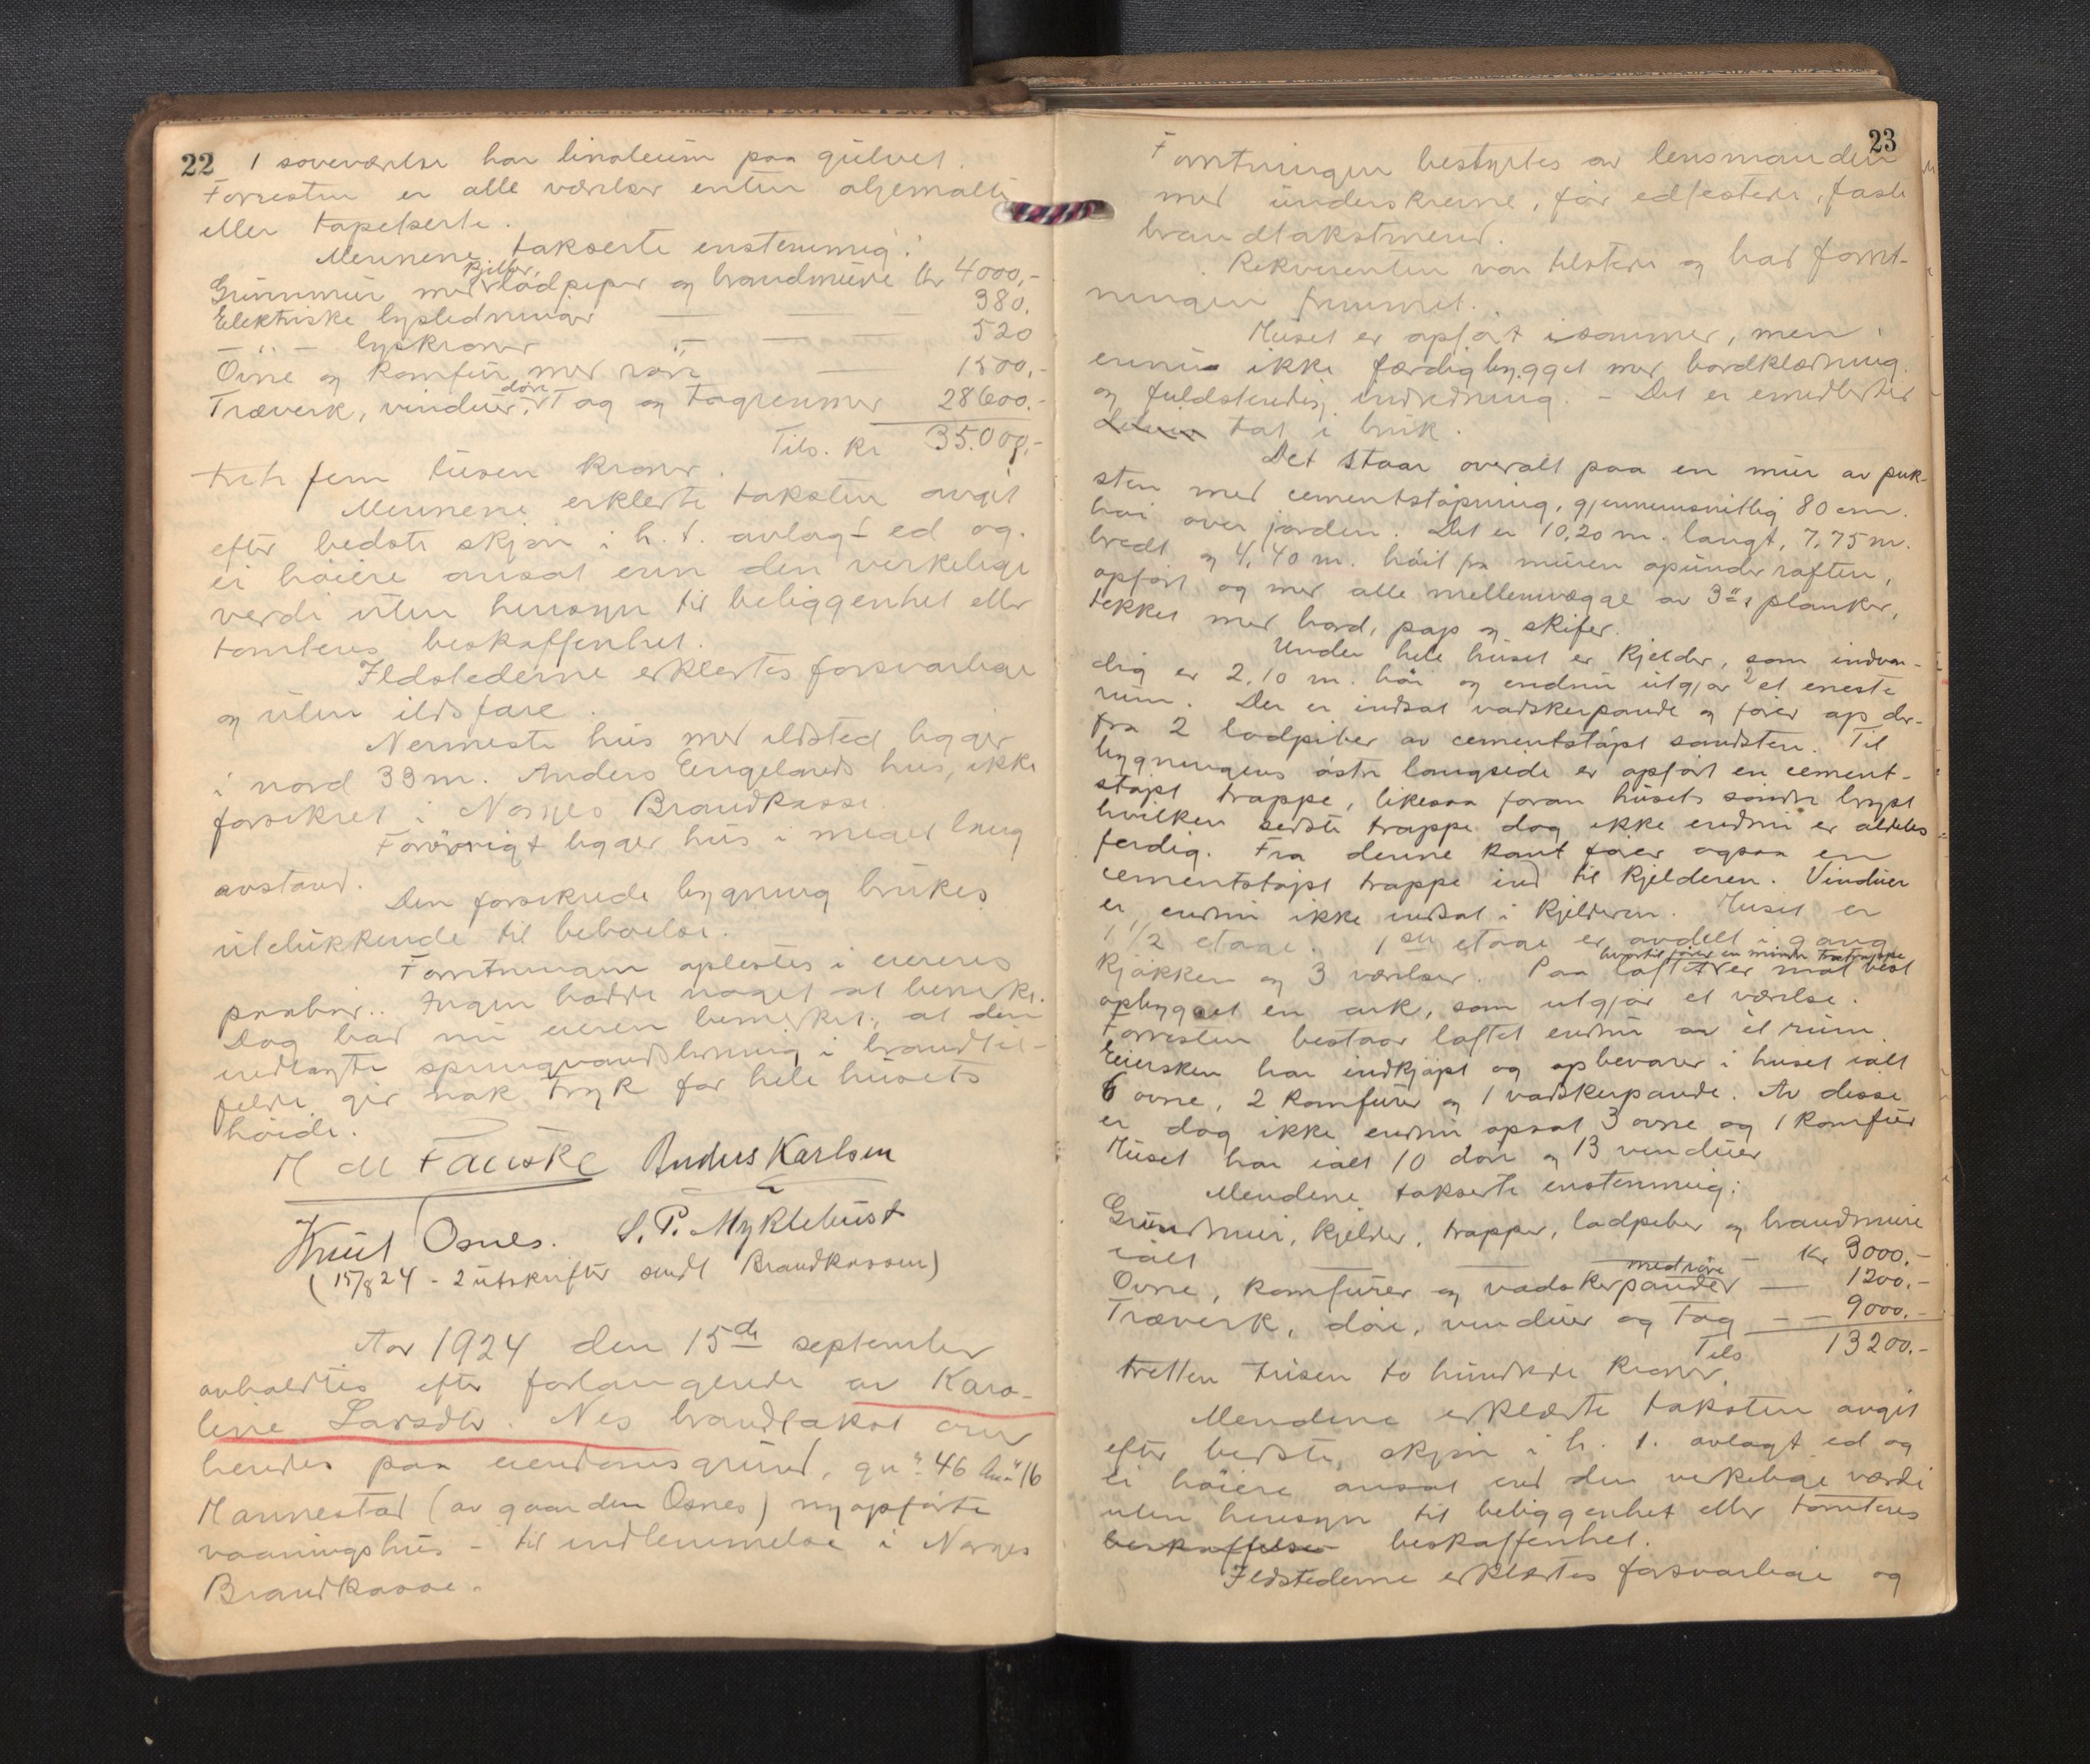 22 1 soveværelse har linoleum paa gulvet.
Forresten er alle værelser enten oljemalte
eller tapetserte.
Mennene takserte enstemmig:
Grunnmur med kjeller, lodpiper og brandmure kr 4000,-
Elektriske lysledninger — — 380.
— " — lyskroner — " — 520
Ovne og komfur med rør — 1500,-
Træverk, vinduer, døre, Tag og tagrenner 28600.-
Tils. kr 35.000,-
treti fem tusen kroner.
Mennene erklerte taksten avgit
efter bedste skjøn i h. t. avlagt ed og
ei høiere ansat enn den verkelige
verdi uten hensyn til beliggenhet eller
tomtens beskaffenhet.
Ildstederne erklertes forsvarlige
og uten ildsfare.
Nermeste hus med ildsted ligger
i nord 33 m. Anders Engelands hus, ikke
forsikret i Norges Brandkasse.
Forøvrigt ligger hus i meget lang
avstand.
Den forsikrede bygning brukes
utelukkende til beboelse.
Forretningen oplestes i eierens
paahør.. Ingen hadde noget at bemerke.
Dog bad nu eieren bemerket, at den
indlagte springvandsledning i brandtil-
felde gir nok tryk for hele husets
høide.
M M Fauske Anders Karlsen
Knut Osnes. S. P. Myklebust
(15/8 24 - 2 utskrifter sendt Brandkassen)
Aar 1924 den 15de september
avholdtes efter forlangende av Karo-
line Larsdtr. Nes brandtakst over
hendes paa eiendomsgrund, gn: 46 bn: 16
Mannestad (av gaarden Osnes) nyopførte
vaaningshus - til indlemmelse i Norges
Brandkasse.
23
Forretningen bestyrtes av lensmanden
med underskrevne, før edfestede, faste
brandtakstmend.
Rekvirenten var tilstede og bad forret-
ningen fremmet.
Huset er opført isommer, men
ennu ikke færdigbygget med bordklædning
og fuldstendig indredning. - Det er emidlertid
tat i bruk.
Det staar overalt paa en mur av puk-
sten med cementstøpning, gjennemsnitlig 80 cm.
høi over jorden. Det er 10,20 m. langt, 7,75 m.
bredt og 4,40 m. høit fra muren opunder raften,
opført og med alle mellemvægge av 3"s planker,
tekket med bord, pap og skifer.
Under hele huset er kjelder, som indven-
dig er 2,10 m. høi og endnu utgjør et eneste
rum. Der er indsat vadskepande og fører op der-
fra 2 lodpiber av cementstøpt sandsten. Til
bygningens østre langside er opført en cement-
støpt trappe, likesaa foran husets søndre bryst
hvilken sidste trappe dog ikke endnu er aldeles
ferdig. Fra denne kant fører ogsaa en
cementstøpt trappe ind til kjelderen. Vinduer
er endnu ikke indsat i kjelderen. Huset er
1 1/2 etage. 1ste etage er avdelt i gang
kjøkken og 3 værelser. Paa loftet hvortil fører en mindre trætrappe er mot vest
opbygget en ark, som utgjør et værelse.
Forresten bestaar loftet endnu av et rum.
Eiersken har indkjøpt og opbevarer i huset ialt
6 ovne, 2 komfurer og 1 vadskepande. Av disse
er dog ikke endnu opsat 3 ovne og 1 komfur
Huset har ialt 10 døre og 13 vinduer
Mendene takserte enstemmig:
Grundmur, kjelder, trapper, lodpiber og brandmure
ialt — kr 3000.-
Ovne, komfurer og vadskepander med rør — 1200.-
Træverk, døre, vinduer og Tag — — 9000.-
Tils 13200.-
tretten tusen to hundrede kroner.
Mendene erklærte taksten avgit
efter bedste skjøn i h. t. avlagt ed og
ei høiere ansat end den verkelige værdi
uten hensyn til beliggenhet eller tomtens
beskaffelse beskaffenhet.
Ildstederne erklærtes forsvarlige og